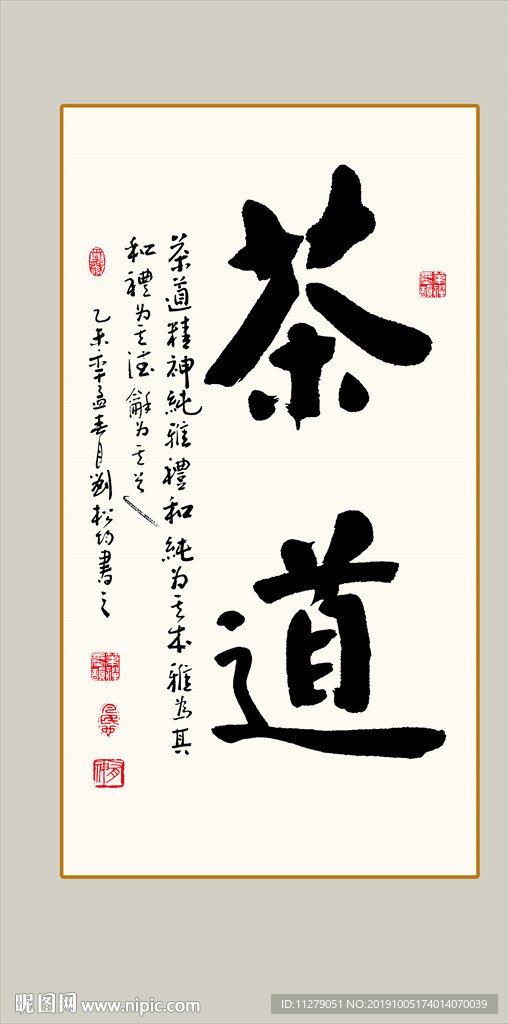 茶道
茶道精神純雅禮和純为其本雅為其
和禮为其德龢为其
乙未年孟春月劉松均書之
昵图网 www.nipic.com
ID:11279051 NO:20191005174014070039